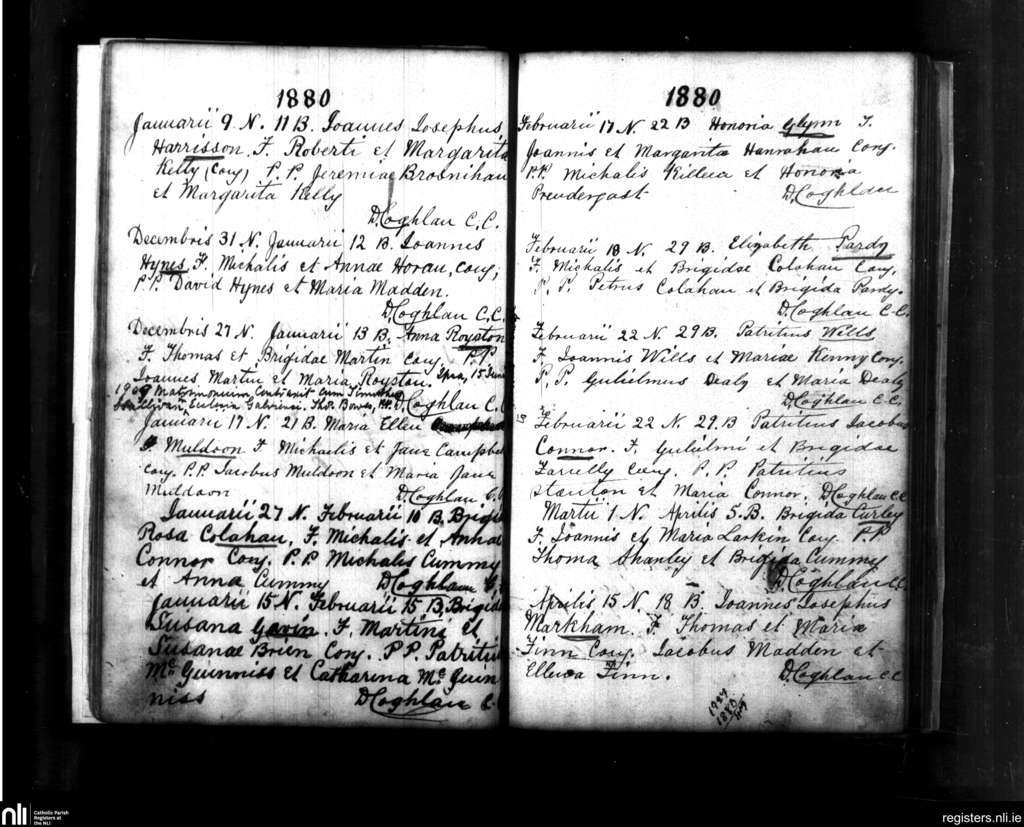 1880
Januarii 9 N. 11 B. Joannes Josephus
Harrisson. F. Roberti et Margarita
Kelly (Conj) P. P. Jeremiae Brosnihan
et Margarita Kelly
D. Coghlan C. C.
Decembris 31 N. Januarii 12 B. Joannes
Hynes F. Michalis et Annae Horan, conj;
P. P. David Hynes et Maria Madden.
D. Coghlan C. C.
Decembris 27 N. Januarii 13 B. Anna Royston
F. Thomas et Brigidae Martin Conj P. P.
Joannes Martin et Maria Royston. 15 June
1909 Matrimonium, Contraxit Cum Timotheo
Sullivan, Thos. Bowes, P.P. D. Coghlan C. C.
Januarii 17 N. 21 B. Maria Ellen
Muldoon F. Michaelis et Jane Campbel
conj. P. P. Jacobus Muldoon et Maria Jane
Muldoon D. Coghlan C. C
Januarii 27 N. Februarii 10 B. Brigid
Rosa Colahan, F. Michalis et Anna
Connor Conj. P. P. Michalis Cummy
et Anna Cummy D. Coghlan C.
Januarii 15 N. Februarii 15 B. Brigid
Susana Gavin. F. Martini et
Susanae Brien Conj. P P. Patritii
Mc Guinniss et Catharina Mc Guin
niss D. Coghlan C.
1880
Februarii 17 N. 22 B Honoria Glynn F.
Joannis et Margarita Hanrahan Conj.
P. P. Michalis Killeea et Honoria
Prendergast D. Coghlan
Februarii 18 N. 29 B. Elizabeth Pardy
F. Michalis et Brigidae Colahan Conj.
P. P. Petrus Colahan et Brigida Pardy.
D. Coghlan C. C.
Februarii 22 N. 29 B. Patritius Wills
F. Joannis Wills et Mariae Kenny Conj.
P. P. Gulielmus Dealy et Maria Dealy
D. Coghlan C. C.
Februarii 22 N. 29. B Patritius Jacobus
Connor. F. Gulielmi et Brigidae
Farrelly Conj. P. P. Patritius
Stanton et Maria Connor. D. Coghlan C C
Martii 1 N. Aprilis 5. B. Brigida Curley
F. Joannis et Maria Larkin Conj. P. P
Thoma Shanley et Brigida Cummy
D. Coghlan C C
Aprilis 15 N. 18 B. Joannes Josephus
Markham. F. Thomas et Maria
Finn Conj. Jacobus Madden et
Ellena Finn. D. Coghlan C C
1880
nli
Catholic Parish
Registers at
the NLI
registers.nli.ie